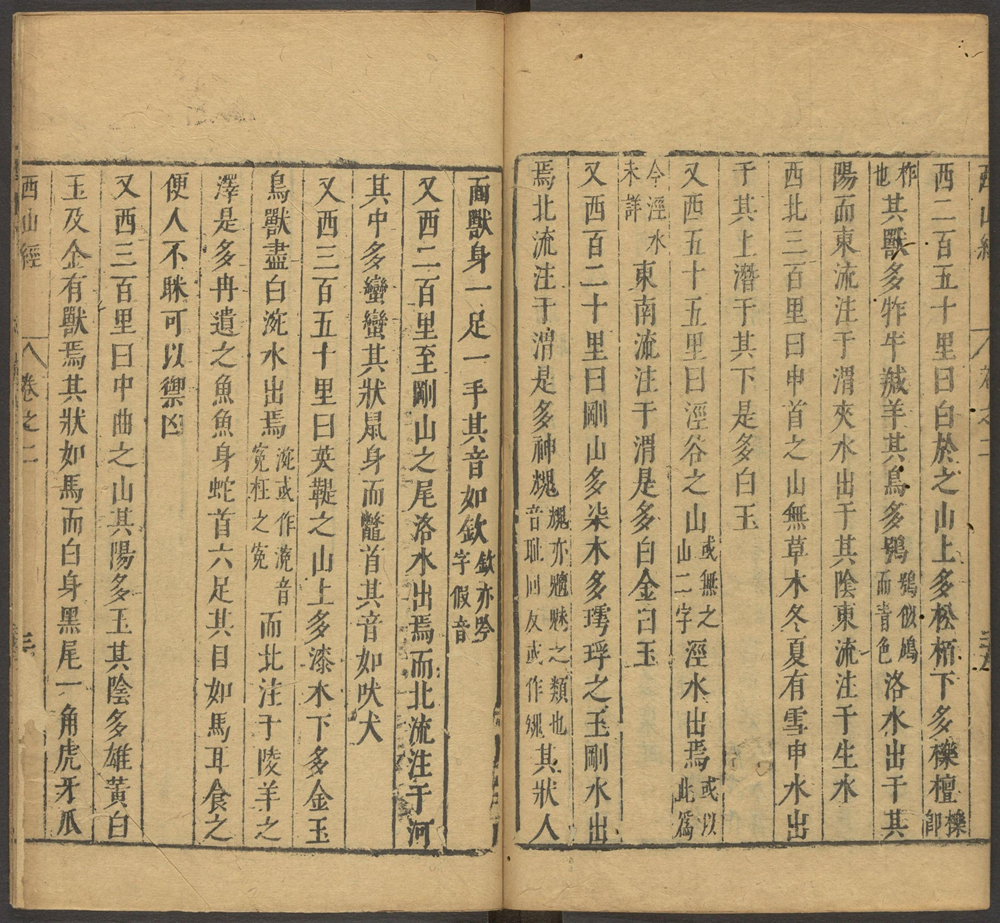 西山經 卷之二
西二百五十里曰白於之山上多松栢下多櫟檀櫟卽
柞也其獸多㸲牛羬羊其鳥多鴞鴞似鳩而青色洛水出于其
陽而東流注于渭夾水出于其陰東流注于生水
西北三百里曰申首之山無草木冬夏有雪申水出
于其上潛于其下是多白玉
又西五十五里曰涇谷之山或無之山二字涇水出焉或以此爲
今涇水未詳東南流注于渭是多白金白玉
又西百二十里曰剛山多柒木多㻬琈之玉剛水出
焉北流注于渭是多神䰠䰠亦魑魅之類也音耻回反或作䰠其狀人
面獸身一足一手其音如欽欽亦吟字假音
又西二百里至剛山之尾洛水出焉而北流注于河
其中多蠻蠻其狀鼠身而鼈首其音如吠犬
又西三百五十里曰英鞮之山上多漆木下多金玉
鳥獸盡白涴水出焉涴或作浼音寃枉之寃而北注于陵羊之
澤是多冉遺之魚魚身蛇首六足其目如馬耳食之
使人不眯可以禦凶
又西三百里曰中曲之山其陽多玉其陰多雄黃白
玉及金有獸焉其狀如馬而白身黑尾一角虎牙爪
西山經 卷之二